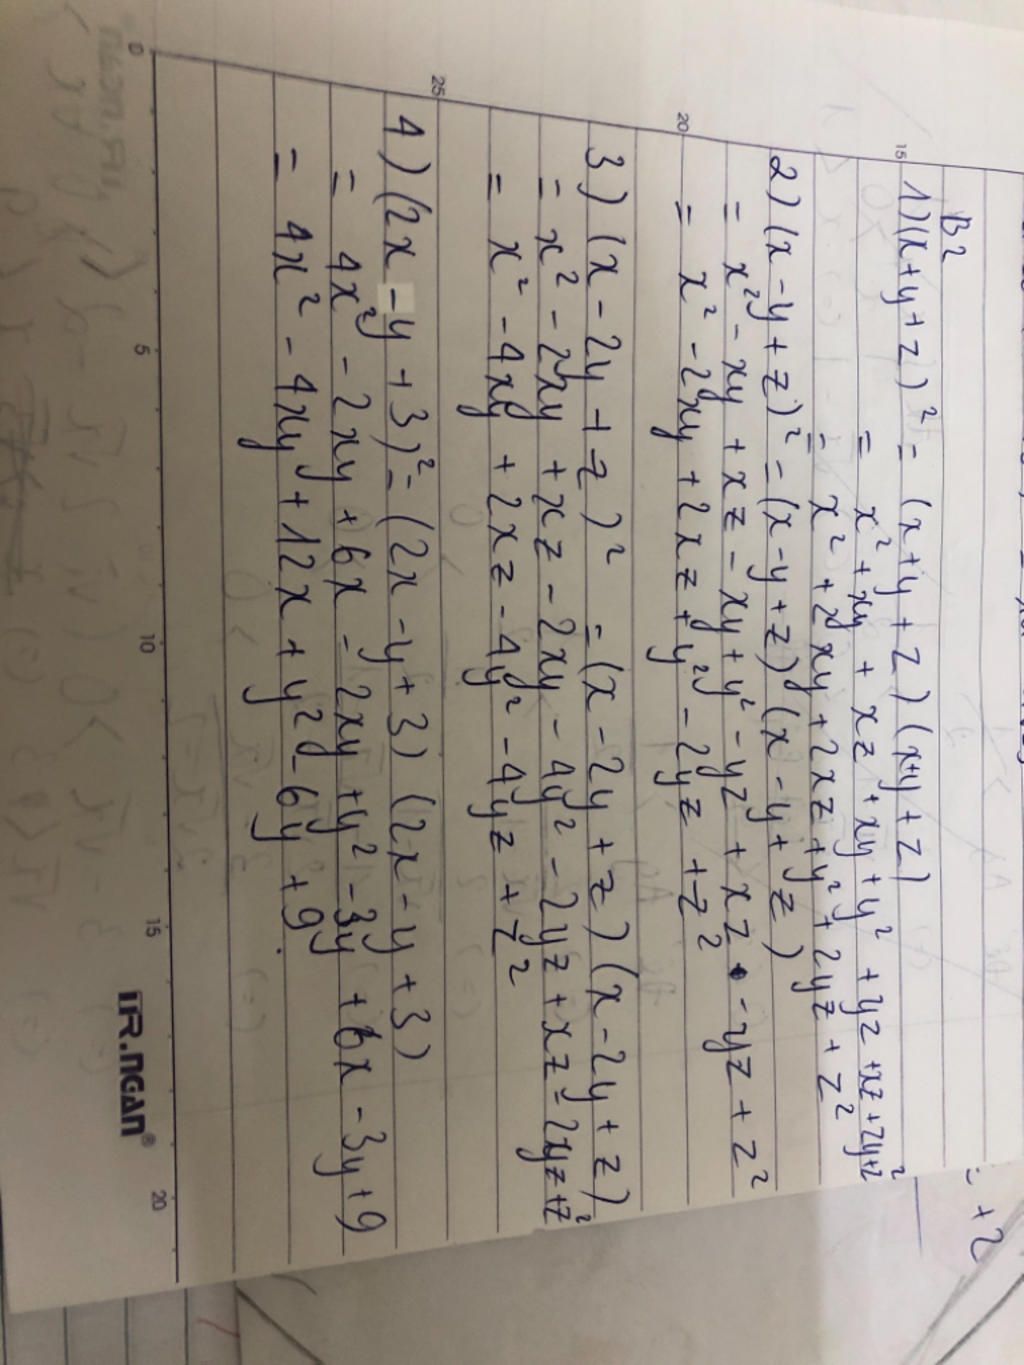 B2
1) (x + y + z)² = (x + y + z) (x + y + z)
= x² + xy + xz + xy + y² + yz + xz + zy + z²
= x² + 2xy + 2xz + y² + 2yz + z²
2) (x - y + z)² = (x - y + z) (x - y + z)
= x² - xy + xz - xy + y² - yz + xz - yz + z²
= x² - 2xy + 2xz + y² - 2yz + z²
3) (x - 2y + z)² = (x - 2y + z) (x - 2y + z)
= x² - 2xy + xz - 2xy - 4y² - 2yz + xz - 2yz + z²
= x² - 4xy + 2xz - 4y² - 4yz + z²
4) (2x - y + 3)² = (2x - y + 3) (2x - y + 3)
= 4x² - 2xy + 6x - 2xy + y² - 3y + 6x - 3y + 9
= 4x² - 4xy + 12x + y² - 6y + 9.
15
20
25
0 5 10 15 20
TR.NGAN®
+2